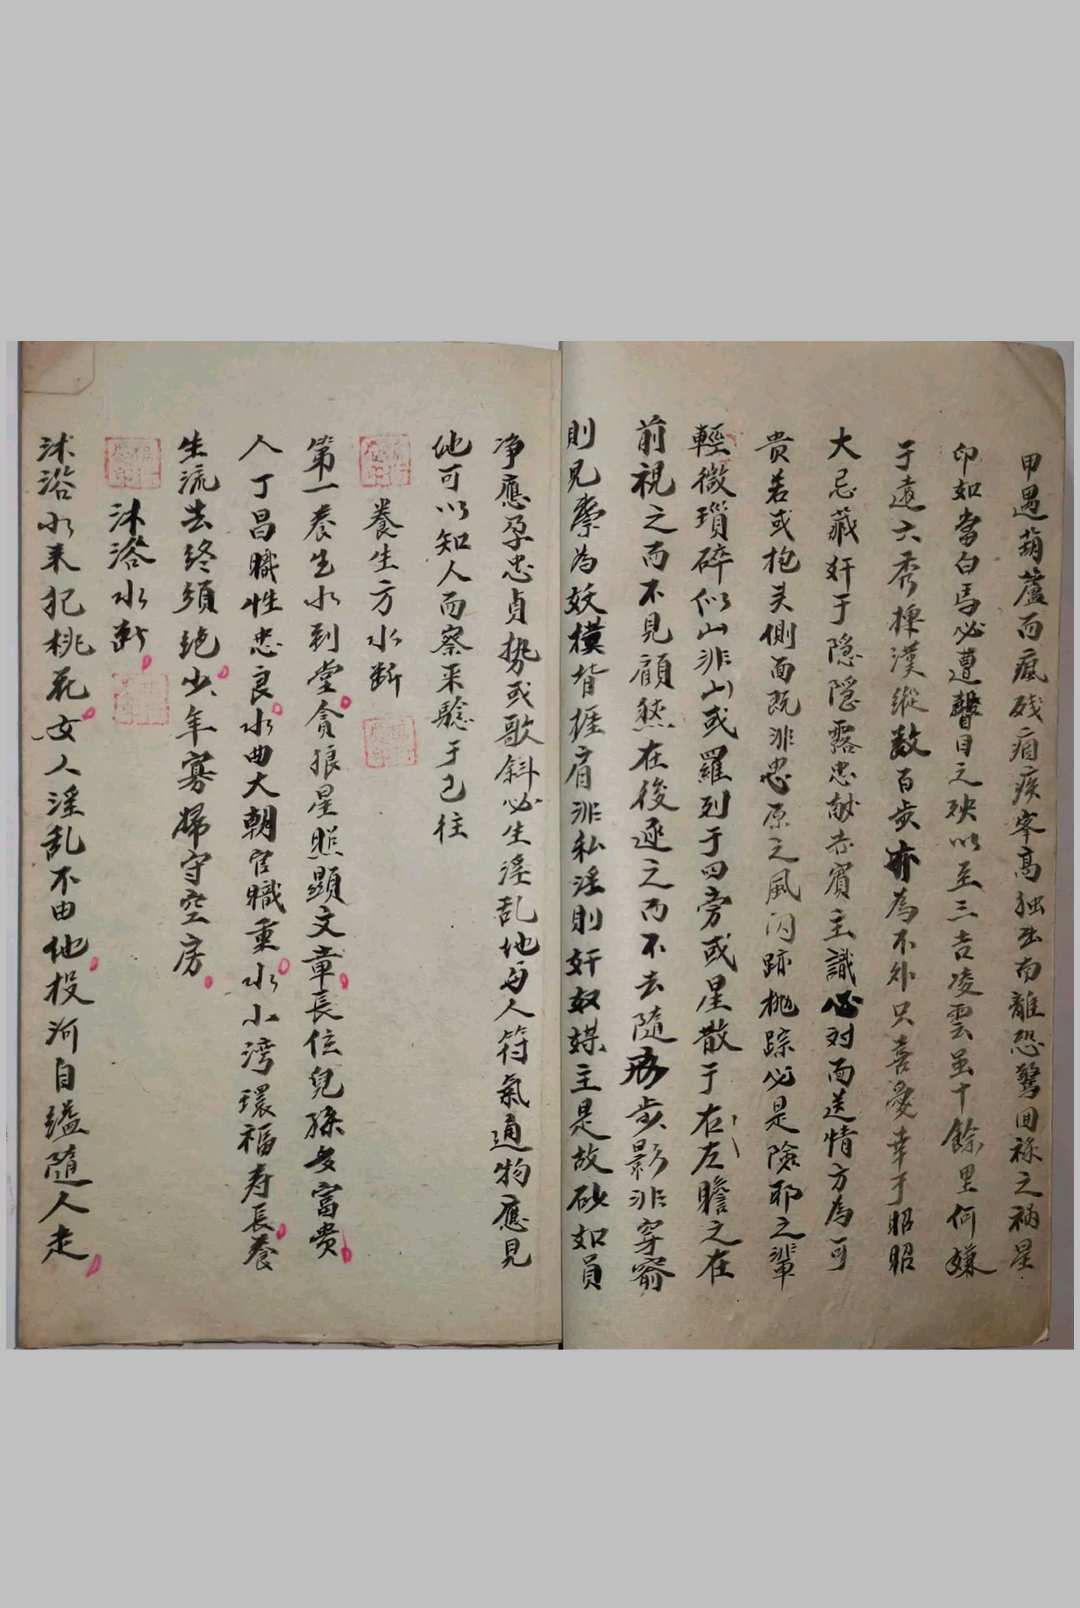 甲遇葫蘆而瘋殘痼疾峯高独出而離恐驚回祿之禍星
印如當白馬必遭瞽目之殃以至三吉凌雲虽十餘里何嫌
于遠六秀揀漢縱数百步亦為不外只喜愛幸于昭昭
大忌藏奸于隐隱露忠献赤賓主識必对面送情方為可
贵若或抱头側面既非忠原之風闪跡桃踪必是險邪之輩
輕微瑣碎似山非山或羅列于四旁或星散于右左瞻之在
前視之而不見顧然在後逐之而不去隨步影非穿窬
則見祟為妖横背捱肩非私淫則奸奴媒主是故砂如員
净應孕忠貞勢或歌斜必生淫乱地与人符氣通物應見
他可以知人而察来騐于已往
養生方水断
第一養生水到堂貪狼星照顯文章長位兒孫多富贵
人丁昌職性忠良水曲大朝官職重水小湾環福寿長養
生流去终須绝少年寡婦守空房
沐浴水断
沐浴水来犯桃花女人淫乱不由他投河自縊隨人走